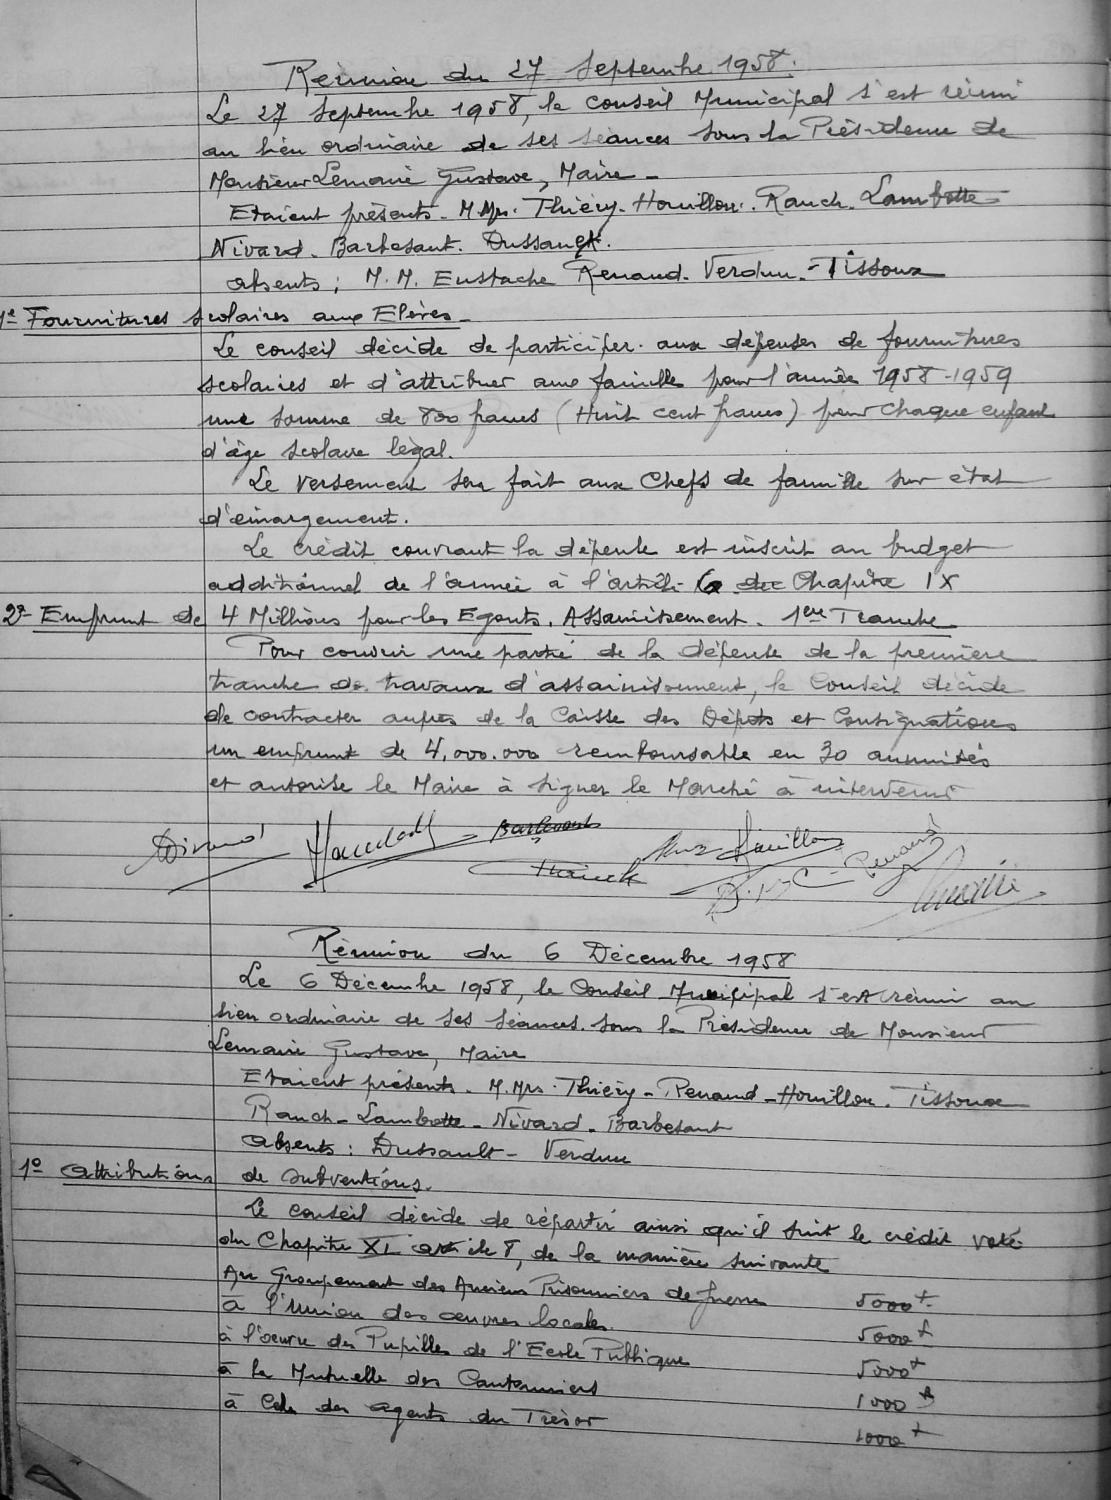 Réunion du 27 Septembre 1958.
Le 27 Septembre 1958, le conseil Municipal s'est réuni
au lieu ordinaire de ses séances sous la Présidence de
Monsieur Lemaire Gustave, Maire -
Etaient présents - M.Mrs. Thiéry - Houillon. Rauch. Lambotte
Nivard - Barbesant. Dussault.
absents ; M.M. Eustache Renaud - Verdun - Tissoux
1º Fournitures scolaires aux Elèves -
Le conseil décide de participer aux dépenses de fournitures
scolaires et d'attribuer aux familles pour l'année 1958-1959
une somme de 800 francs (Huit cent francs) pour chaque enfant
d'âge scolaire légal.
Le versement sera fait aux Chefs de famille sur état
d'émargement.
Le crédit couvrant la dépense est inscrit au budget
additionnel de l'année à l'article 6 du Chapitre IX
2º Emprunt de 4 Millions pour les Egouts. Assainissement. 1ère Tranche
Pour couvrir une partie de la dépense de la première
tranche de travaux d'assainissement, le Conseil décide
de contracter auprès de la Caisse des Dépôts et Consignations
un emprunt de 4.000.000 remboursable en 30 annuités
et autorise le Maire à signer le Marché à intervenir
Nivard Barbesant Houillon Rauch Renaud Lemaire
Réunion du 6 Décembre 1958
Le 6 Décembre 1958, le Conseil Municipal s'est réuni au
lieu ordinaire de ses séances sous la Présidence de Monsieur
Lemaire Gustave, Maire
Etaient présents - M.Mrs. Thiéry - Renaud - Houillon. Tissoux
Rauch - Lambotte - Nivard - Barbesant
absents : Dussault - Verdun
1º attributions de subventions.
Le conseil décide de répartir ainsi qu'il suit le crédit voté
du Chapitre XI article 8, de la manière suivante
Au Groupement des Anciens Prisonniers de guerre 5000f
à l'Union des oeuvres locales 5000f
à l'oeuvre des Pupilles de l'Ecole Publique 5000f
à la Mutuelle des Cantonniers 1000f
à Celle des agents du Trésor 1000f